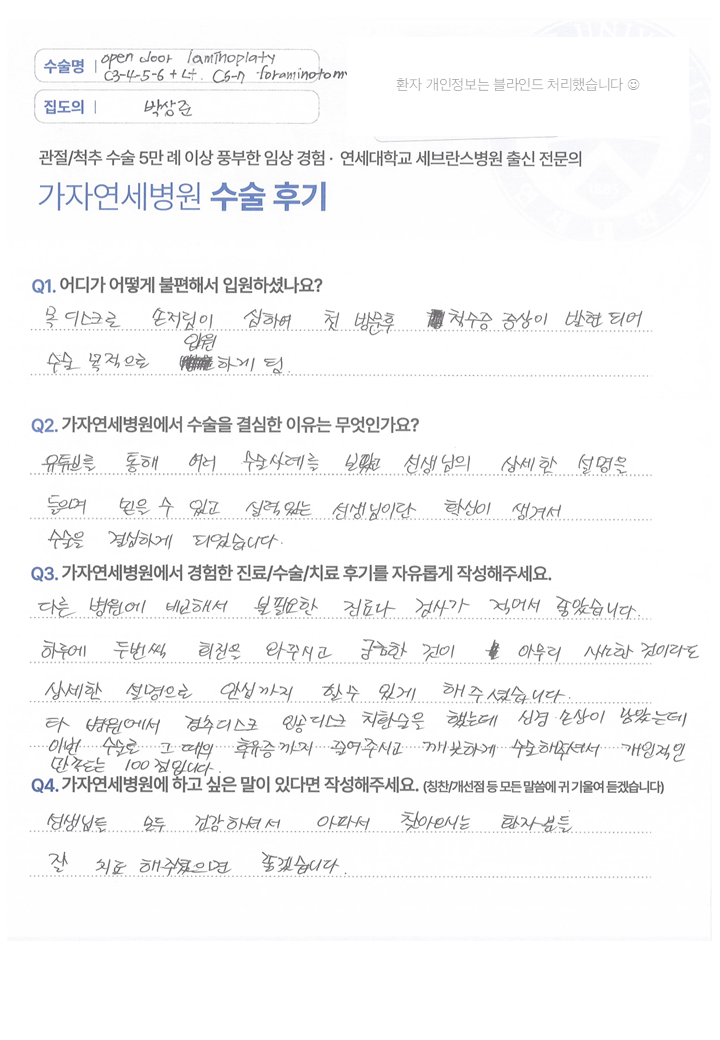 수술명 | open door laminoplaty
C3-4-5-6 + Lt. C6-7 foraminotomy
환자 개인정보는 블라인드 처리했습니다 ☺
집도의 | 박상준
관절/척추 수술 5만 례 이상 풍부한 임상 경험 · 연세대학교 세브란스병원 출신 전문의
가자연세병원 수술 후기
Q1. 어디가 어떻게 불편해서 입원하셨나요?
목 디스크로 손저림이 심하여 첫 방문후 척수증 증상이 발현 되어
수술 목적으로 입원 하게 됨.
Q2. 가자연세병원에서 수술을 결심한 이유는 무엇인가요?
유튜브를 통해 여러 수술사례를 보았고 선생님의 상세한 설명을
들으며 믿을 수 있고 실력있는 선생님이란 확신이 생겨서
수술을 결심하게 되었습니다.
Q3. 가자연세병원에서 경험한 진료/수술/치료 후기를 자유롭게 작성해주세요.
다른 병원에 비교해서 불필요한 진료나 검사가 적어서 좋았습니다.
하루에 두번씩 회진을 와주시고 궁금한 것이 아무리 사소한 것이라도
상세한 설명으로 안심까지 할수 있게 해주셨습니다.
타 병원에서 경추디스크 인공디스크 치환술을 했는데 신경 손상이 남았는데
이번 수술로 그 때의 후유증까지 잡아주시고 깨끗하게 수술해주셔서 개인적인
만족도는 100점입니다.
Q4. 가자연세병원에 하고 싶은 말이 있다면 작성해주세요. (칭찬/개선점 등 모든 말씀에 귀 기울여 듣겠습니다)
선생님들 모두 건강하셔서 아파서 찾아오시는 환자분들
잘 치료 해주셨으면 좋겠습니다.